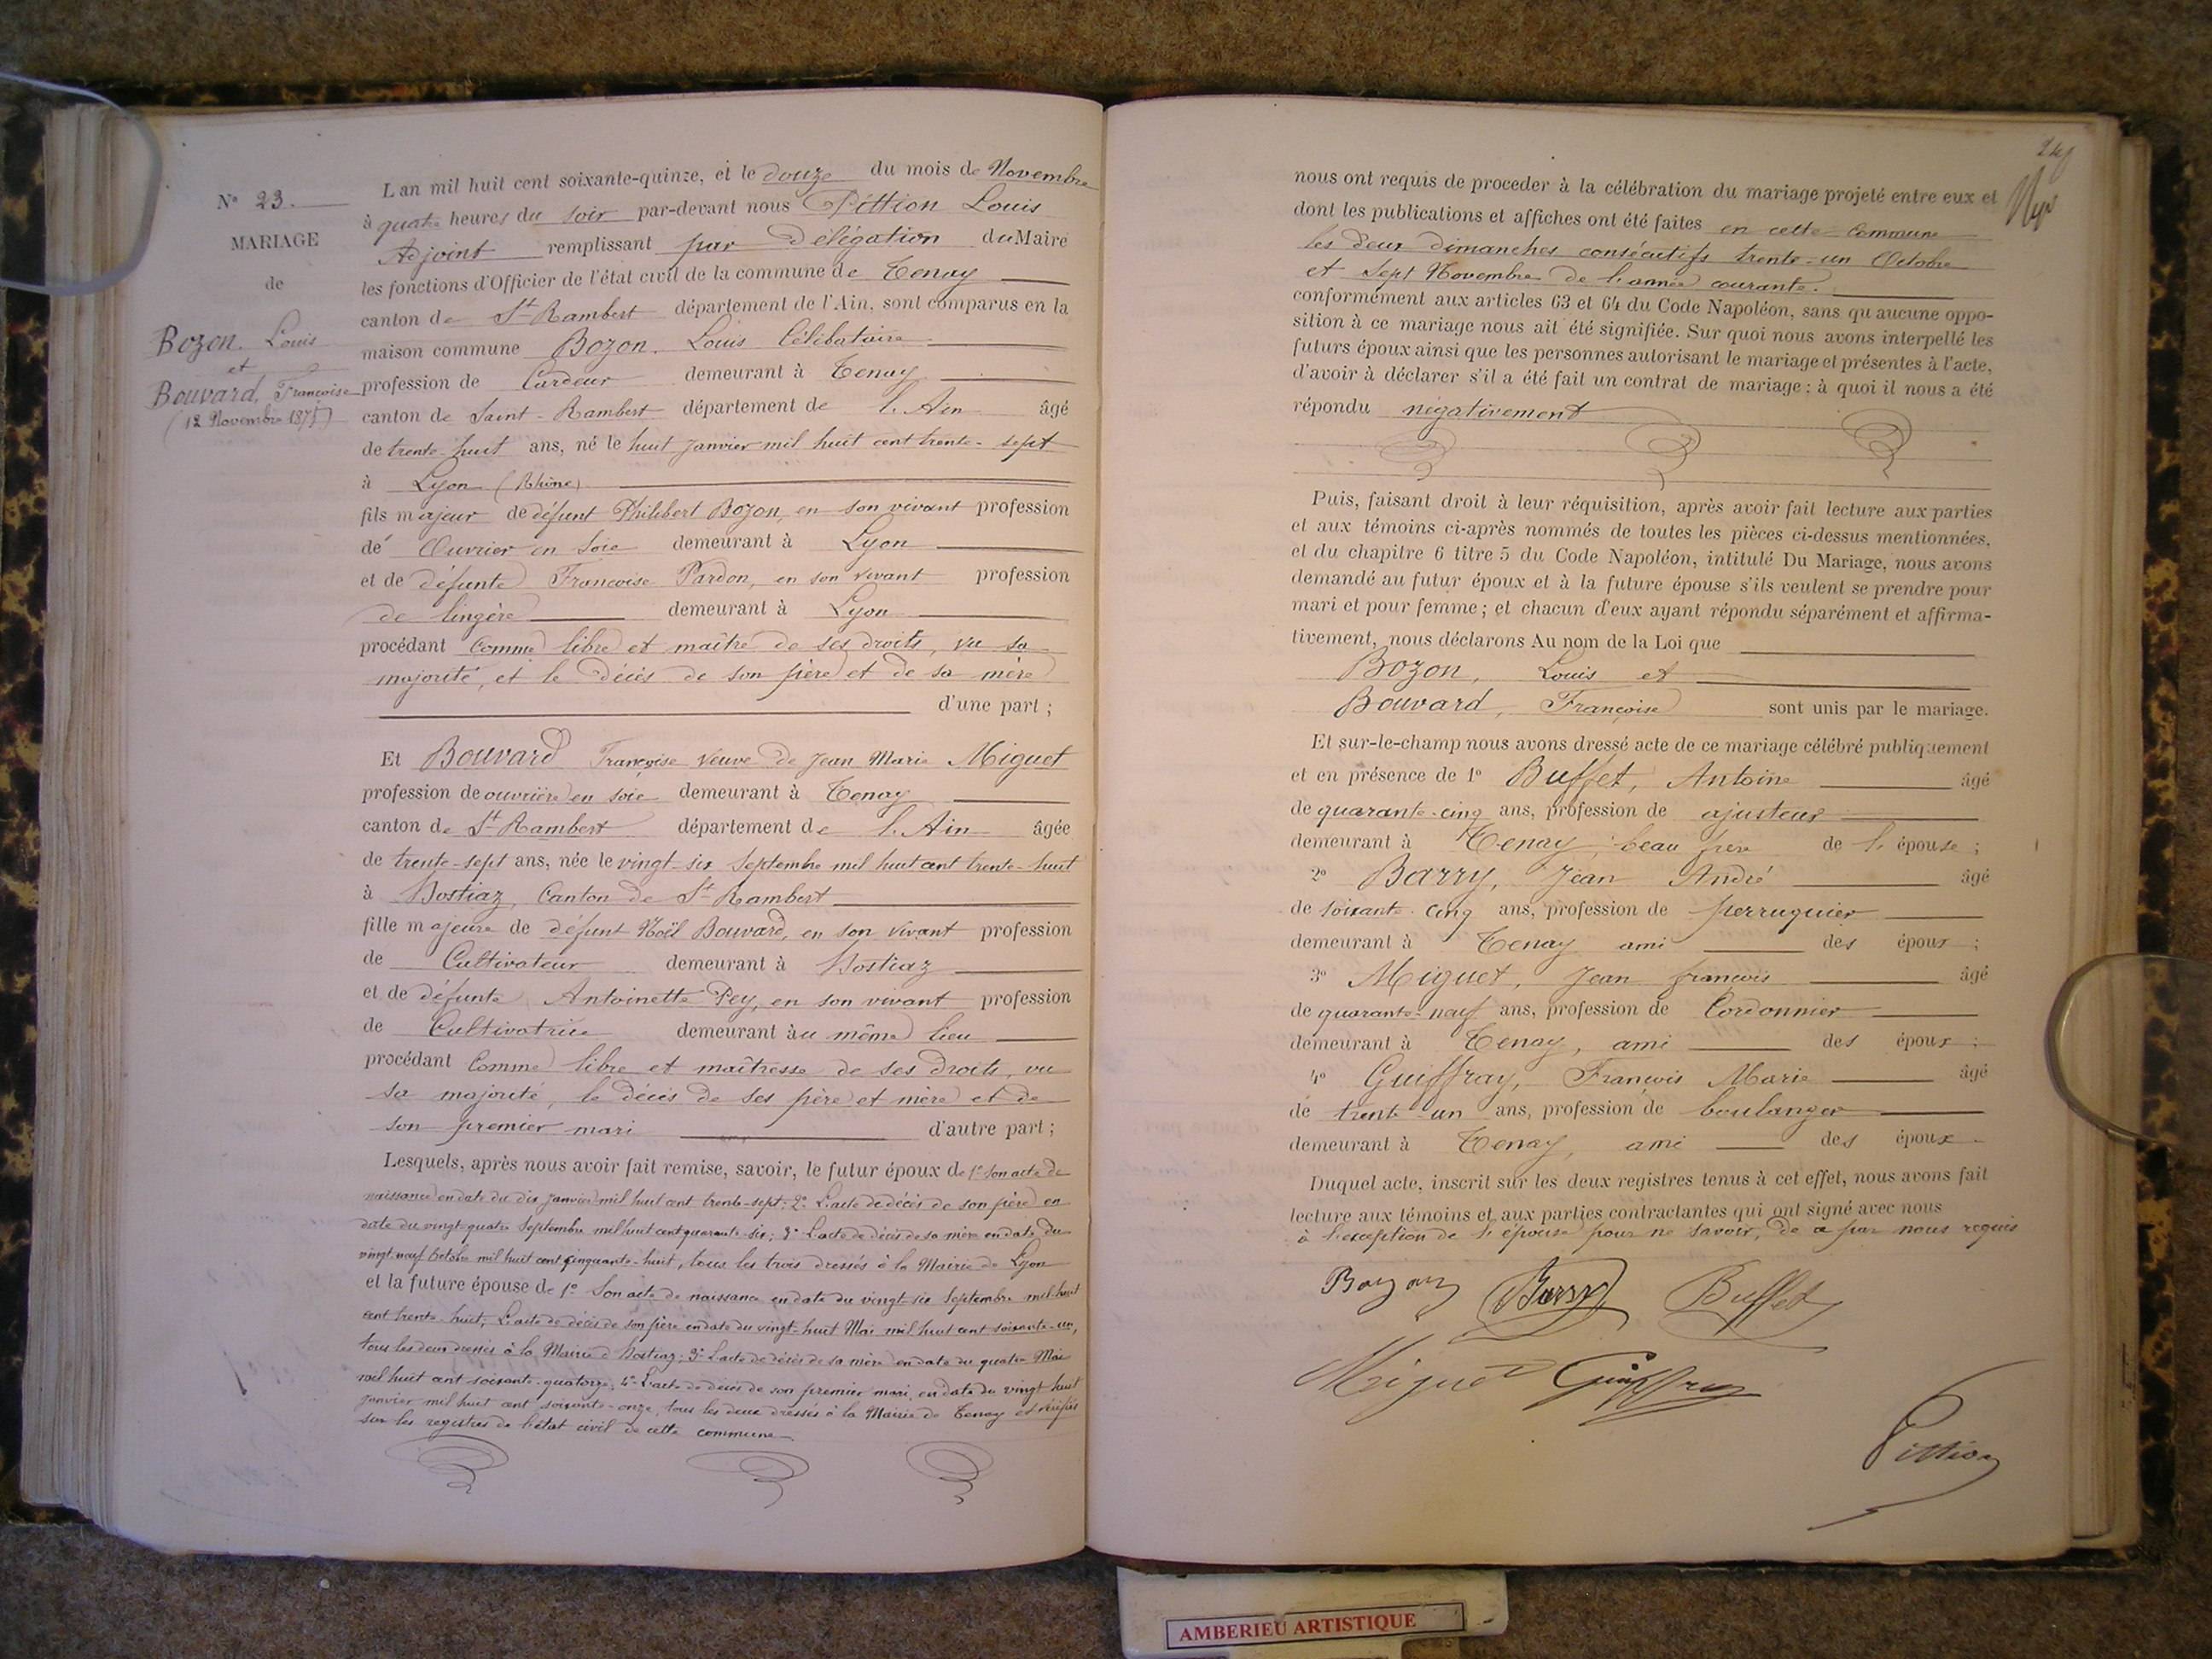 N° 23.
MARIAGE
de
Bozon. Louis
et
Bouvard, Françoise
(12 Novembre 1875)
L'an mil huit cent soixante-quinze, et le douze du mois de Novembre
à quatre heures du soir par-devant nous Pittion Louis
Adjoint remplissant par Délégation du Maire
les fonctions d'Officier de l'état civil de la commune de Tenay
canton de St Rambert département de l'Ain, sont comparus en la
maison commune Bozon. Louis Célibataire
profession de Cardeur demeurant à Tenay
canton de Saint-Rambert département de l'Ain âgé
de trente-huit ans, né le huit Janvier mil huit cent trente-sept
à Lyon (Rhône)
fils majeur de défunt Philibert Bozon, en son vivant profession
de Ouvrier en Soie demeurant à Lyon
et de défunte Françoise Pardon, en son vivant profession
de lingère demeurant à Lyon
procédant comme libre et maître de ses droits, vu sa
majorité, et le décès de son père et de sa mère
d'une part ;
Et Bouvard Françoise veuve de Jean Marie Miguet
profession de ouvrière en soie demeurant à Tenay
canton de St Rambert département de l'Ain âgée
de trente-sept ans, née le vingt-six Septembre mil huit cent trente-huit
à Hostiaz, Canton de St Rambert
fille majeure de défunt Noël Bouvard, en son vivant profession
de Cultivateur demeurant à Hostiaz
et de défunte Antoinette Pey, en son vivant profession
de Cultivatrice demeurant au même lieu
procédant comme libre et maîtresse de ses droits, vu
sa majorité, le décès de ses père et mère et de
son premier mari d'autre part ;
Lesquels, après nous avoir fait remise, savoir, le futur époux de 1° son acte de
naissance en date du dix Janvier mil huit cent trente-sept; 2° L'acte de décès de son père en
date du vingt-quatre Septembre mil huit cent quarante-six; 3° L'acte de décès de sa mère en date du
vingt-neuf Octobre mil huit cent cinquante-huit, tous les trois dressés à la Mairie de Lyon
et la future épouse de 1° Son acte de naissance en date du vingt-six Septembre mil huit
cent trente-huit; L'acte de décès de son père en date du vingt-huit Mai mil huit cent soixante-un,
tous les deux dressés à la Mairie d'Hostiaz; 3° L'acte de décès de sa mère en date du quatre Mai
mil huit cent soixante-quatorze; 4° L'acte de décès de son premier mari, en date du vingt huit
Janvier mil huit cent soixante-onze, tous les deux dressés à la Mairie de Tenay et vérifiés
sur les registres de l'état civil de cette commune
24
nous ont requis de proceder à la célébration du mariage projeté entre eux et
dont les publications et affiches ont été faites en cette commune
les deux dimanches consécutifs trente-un Octobre
et sept Novembre de l'année courante.
conformément aux articles 63 et 64 du Code Napoléon, sans qu'aucune oppo-
sition à ce mariage nous ait été signifiée. Sur quoi nous avons interpellé les
futurs époux ainsi que les personnes autorisant le mariage et présentes à l'acte,
d'avoir à déclarer s'il a été fait un contrat de mariage ; à quoi il nous a été
répondu négativement
Puis, faisant droit à leur réquisition, après avoir fait lecture aux parties
et aux témoins ci-après nommés de toutes les pièces ci-dessus mentionnées,
et du chapitre 6 titre 5 du Code Napoléon, intitulé Du Mariage, nous avons
demandé au futur époux et à la future épouse s'ils veulent se prendre pour
mari et pour femme ; et chacun d'eux ayant répondu séparément et affirma-
tivement, nous déclarons Au nom de la Loi que
Bozon, Louis et
Bouvard, Françoise sont unis par le mariage.
Et sur-le-champ nous avons dressé acte de ce mariage célébré publiquement
et en présence de 1° Buffet, Antoine âgé
de quarante-cinq ans, profession de ajusteur
demeurant à Tenay, beau frère de l'épouse ;
2° Barry, Jean André âgé
de soixante-cinq ans, profession de perruquier
demeurant à Tenay ami des époux ;
3° Miguet, Jean françois âgé
de quarante-neuf ans, profession de Cordonnier
demeurant à Tenay, ami des époux ;
4° Guiffray, François Marie âgé
de trente-un ans, profession de boulanger
demeurant à Tenay, ami des époux
Duquel acte, inscrit sur les deux registres tenus à cet effet, nous avons fait
lecture aux témoins et aux parties contractantes qui ont signé avec nous
à l'exception de l'épouse pour ne savoir, de ce par nous requis
Bozon Barry Buffet
Miguet Guiffray
Pittion
AMBERIEU ARTISTIQUE